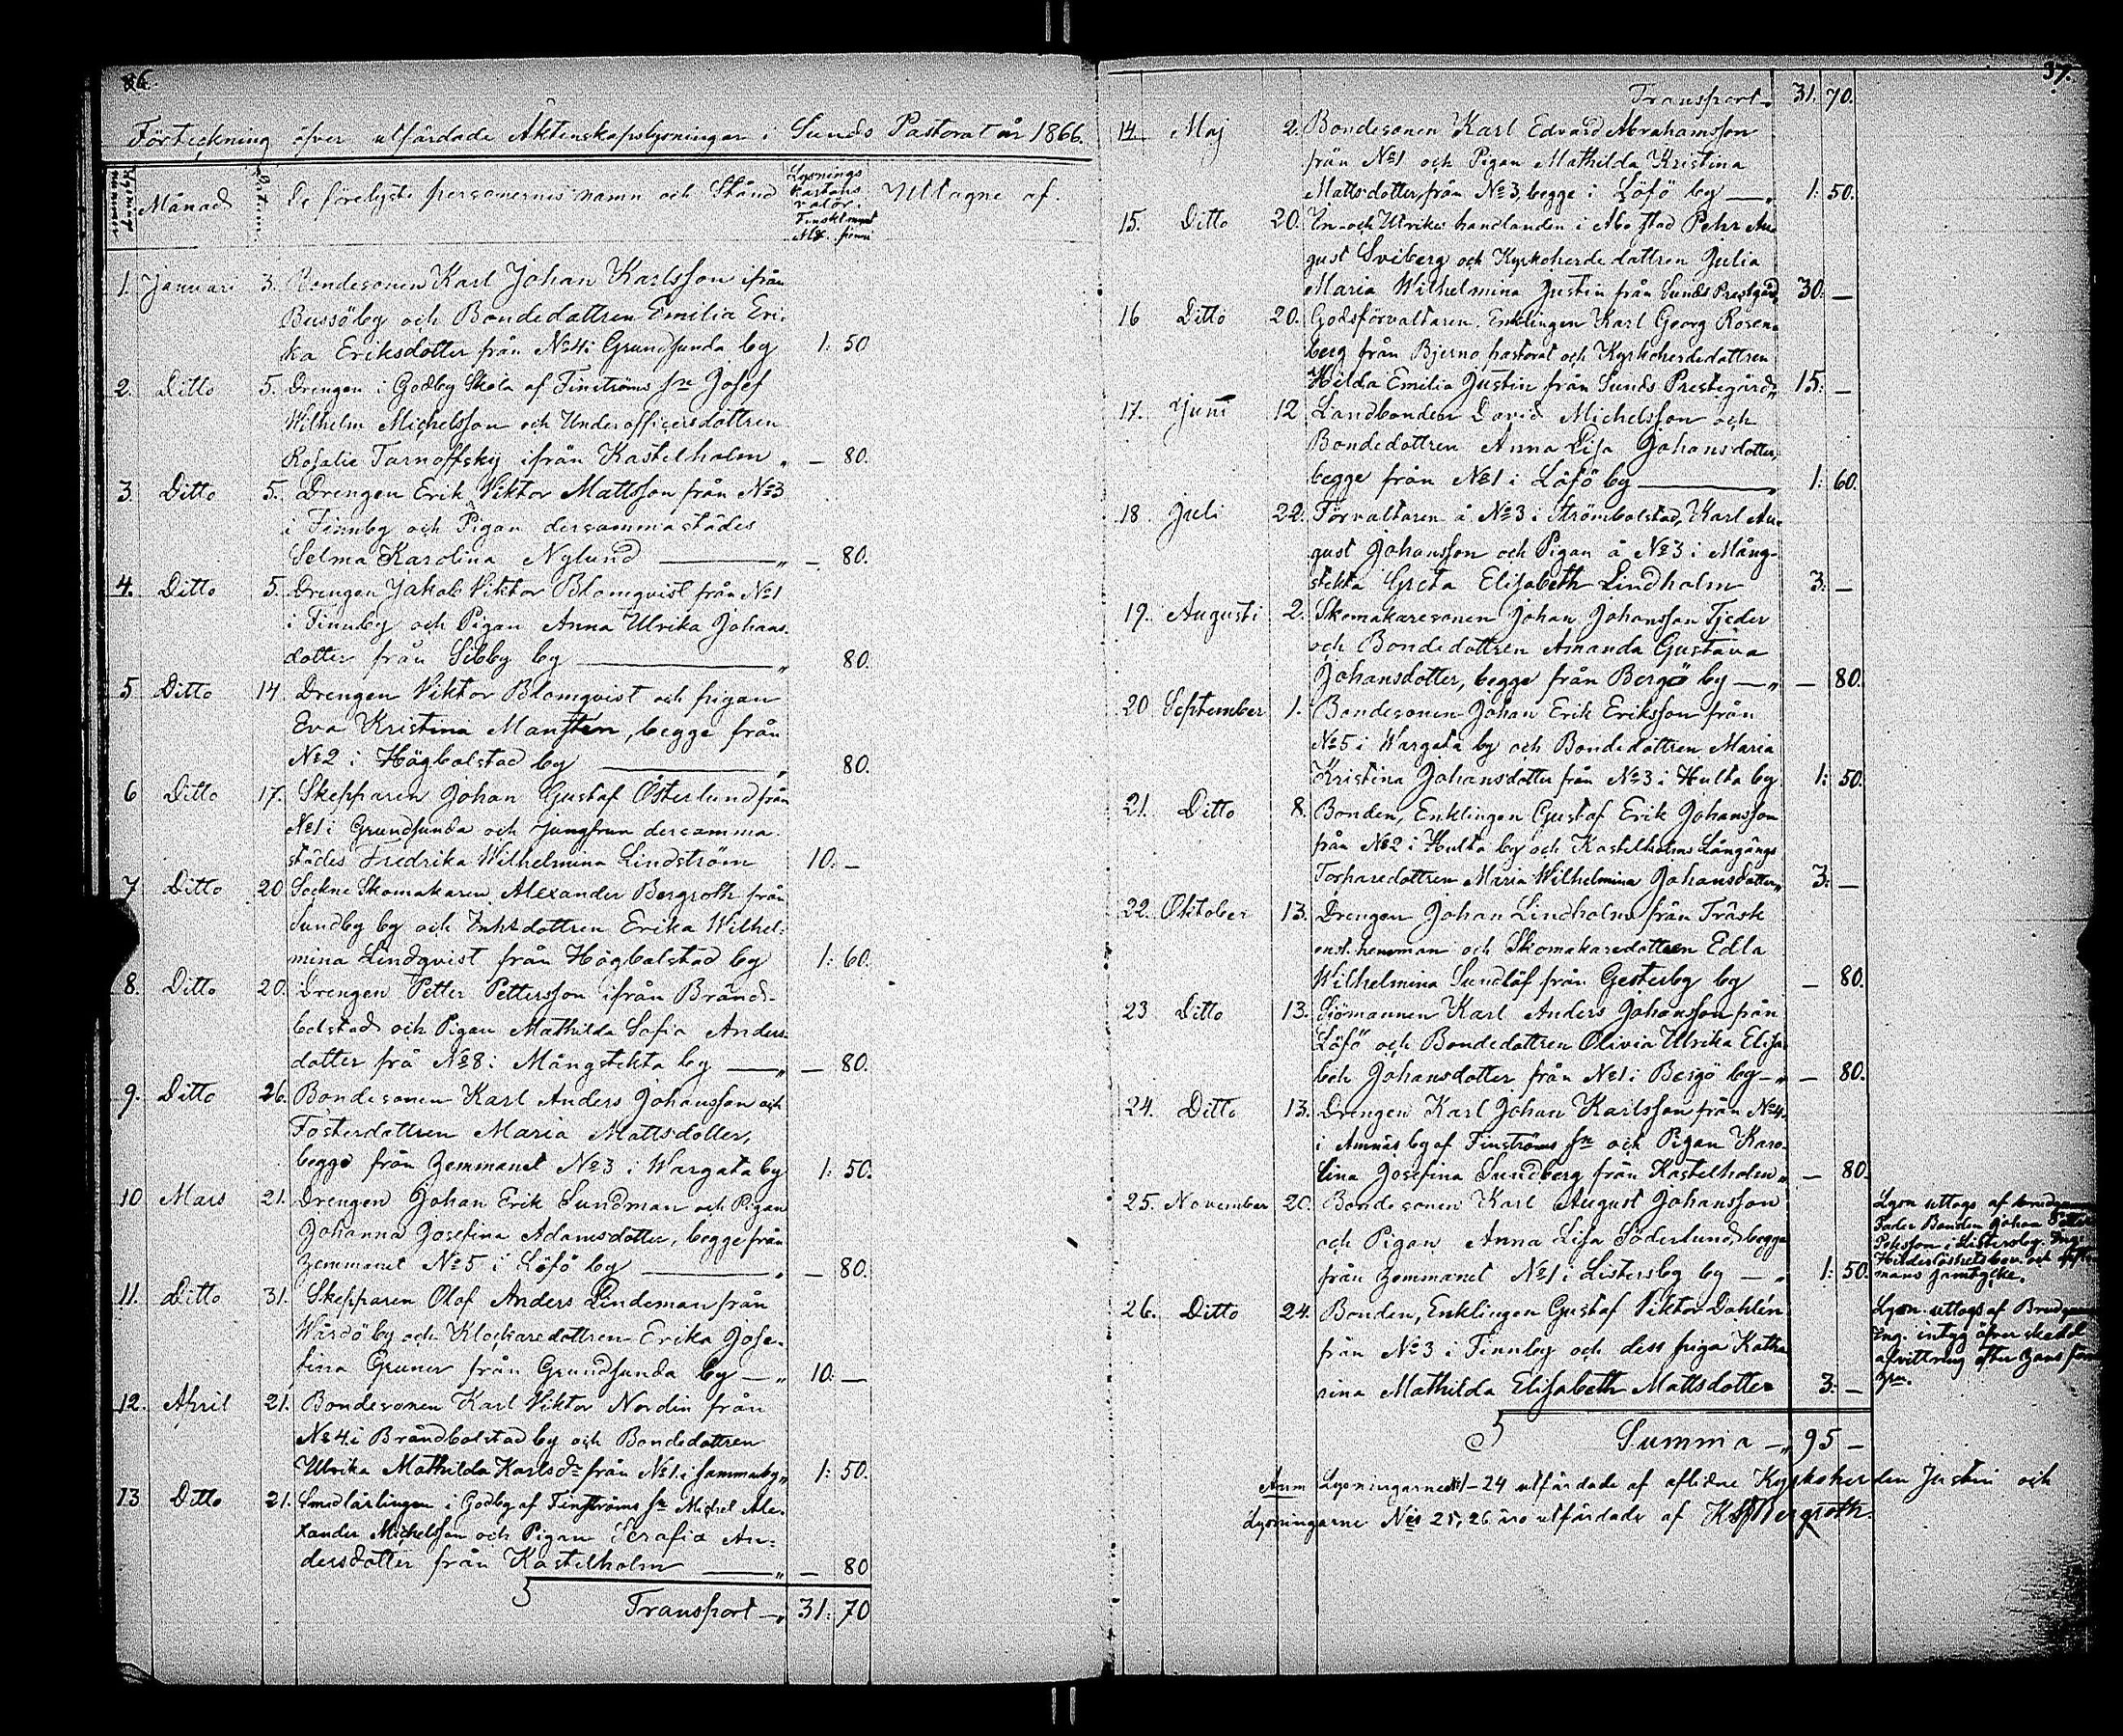 86.
Förteckning öfver utfärdade Äktenskapslysningar i Sunds Pastorat år 1866.
Lysnings nummer
Månad
Datum
De förelyste personernes namn och Stånd
Lysnings
Kartans
valör.
Finskt mynt
Mk. penni
Uttagne af.
1. Januari 3. Bondesonen Karl Johan Karlsson ifrån
Bussö by och Bondedottren Emilia Eri-
ka Eriksdotter från No 4 i Grundsunda by 1: 50
2. Ditto 5. Drengen i Godby Skola af Finströms Sn Josef
Wilhelm Michelsson och Underofficersdottren
Rosalie Tarnoffsky ifrån Kastelholm „ — 80.
3. Ditto 5. Drengen Erik Viktor Mattsson från No 3
i Finnby och Pigan dersammastädes
Selma Karolina Nylund — „ — 80.
4. Ditto 5. Drengen Jakob Viktor Blomqvist från No 1
i Finnby och Pigan Anna Ulrika Johans-
dotter från Sibby by — „ 80.
5 Ditto 14. Drengen Viktor Blomqvist och pigan
Eva Kristina Mansten, begge från
No 2 i Högbolstad by — „ 80.
6 Ditto 17. Skepparen Johan Gustaf Österlund från
No 1 i Grundsunda och Jungfrun dersamma-
städes Fredrika Wilhelmina Lindström 10. —
7 Ditto 20 Sockne Skomakaren Alexander Bergroth från
Sundby by och Enksdottren Erika Wilhel-
mina Lindqvist från Högbolstad by 1: 60.
8. Ditto 20. Drengen Petter Pettersson ifrån Bränd-
bolstad och Pigan Mathilda Sofia Anders-
dotter frå No 8 i Mångstekta by — „ — 80.
9. Ditto 26. Bondesonen Karl Anders Johansson och
Fosterdottren Maria Mattsdotter,
begge från Hemmanet No 3 i Wargata by 1: 50.
10 Mars 21. Drengen Johan Erik Sundman och Pigan
Johanna Josefina Adamsdotter, begge från
Hemmanet No 5 i Löfö by — „ — 80.
11. Ditto 31. Skepparen Olof Anders Lindeman från
Wårdö by och Klockaredottren Erika Jose-
fina Gruner från Grundsunda by — „ 10: —
12. April 21. Bondesonen Karl Viktor Nordin från
No 4 i Brändbolstad by och Bondedottren
Ulrika Mathilda Karlsdr från No 1 i samma by „ 1: 50.
13 Ditto 21. Smedlärlingen i Godby af Finströms Sn Michel Ale-
xander Michelsson och Pigan Serafia An-
dersdotter från Kastelholm — „ — 80
Transport —„ 31: 70
37.
Transport „ 31. 70.
14 Maj 2. Bondesonen Karl Edvard Abrahamsson
från No 1 och Pigan Mathilda Kristina
Mattsdotter från No 3, begge i Löfö by — „ 1: 50.
15. Ditto 20. In- och Utrikes handlanden i Åbo stad Pehr Au-
gust Sviberg och Kyrkoherde dottren Julia
Maria Wilhelmina Justin från Sunds Prestgård „ 30: —
16 Ditto 20. Godsförvaltaren, Enklingen Karl Georg Rosen-
berg från Bjerno pastorat och Kyrkoherdedottren
Hilda Emilia Justin från Sunds Prestegård „ 15: —
17. Juni 12 Landbonden David Michelsson och
Bondedottren Anna Lisa Johansdotter,
begge från No 1 i Löfö by — „ 1: 60.
18 Juli 22. Förvaltaren å No 3 i Strömbolstad, Karl Au-
gust Johansson och Pigan å No 3 i Mång-
stekta Greta Elisabeth Lindholm 3: —
19. Augusti 2. Skomakaresonen Johan Johansson Tjeder
och Bondedottren Amanda Gustava
Johansdotter, begge från Bergö by — „ — 80.
20 September 1. Bondesonen Johan Erik Eriksson från
No 5 i Wargata by och Bondedottren Maria
Kristina Johansdotter från No 3 i Hulta by 1: 50.
21. Ditto 8. Bonden, Enklingen Gustaf Erik Johansson
från No 2 i Hulta by och Kastelholms Långängs
Torparedottren Maria Wilhelmina Johansdotter „ 3: —
22. Oktober 13. Drengen Johan Lindholm från Träsk
enst. hemman och Skomakaredottren Edla
Wilhelmina Sundlöf från Gesterby by — 80.
23 Ditto 13. Sjömannen Karl Anders Johansson från
Löfö och Bondedottren Olivia Ulrika Elisa-
beth Johansdotter från No 1 i Bergö by — „ — 80.
24. Ditto 13. Drengen Karl Johan Karlsson från No 4
i Amnäs by af Finströms Sn och Pigan Karo-
lina Josefina Sundberg från Kastelholm „ — 80.
25. November 20. Bondesonen Karl August Johansson
och Pigan Anna Lisa Söderlund, begge
från Hemmanet No 1 i Listersby by — „ 1: 50.
Lysn uttogs af
Fader Bonden Johan
i Listersby.
Hinderlöshetsbevis och
mans samtycke.
26. Ditto 24. Bonden, Enklingen Gustaf Viktor Dahlén
från No 3 i Finnby och dess piga Katha-
rina Mathilda Elisabeth Mattsdotter 3: —
Lysn. uttogs af Brudgummen
Ing. intyg öfver skedd
afvittring efter Hans
Summa —„ 95 —
Anm Lysningarne No 1–24 utfärdade af aflidne Kyrkoherden Justin och
Lysningarne Nis 25, 26 äro utfärdade af K Bergroth.